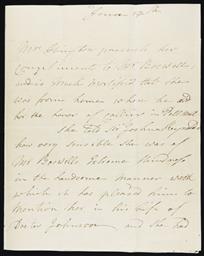 Mrs Abington presents her
Compliments to Mr Boswell
and is Much Mortified that she
was from home when he did
her the honor of calling in Pall Mall
she told Sir Joshua Reynolds
how very sensible she was of
Mr Boswells Extreme Kindness
in the handsome manner with
which it has pleased him to
Mention her in his Life of
Doctor Johnson and she had